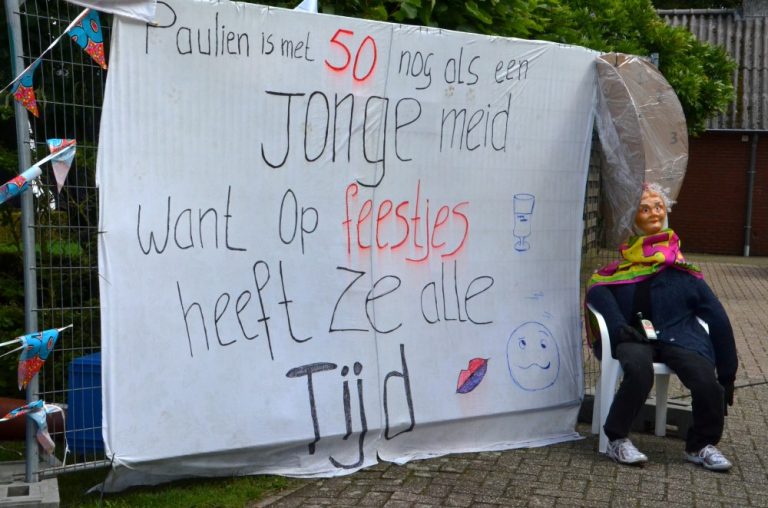 Paulien is met 50 nog als een
Jonge meid
want op feestjes
heeft ze alle
Tijd